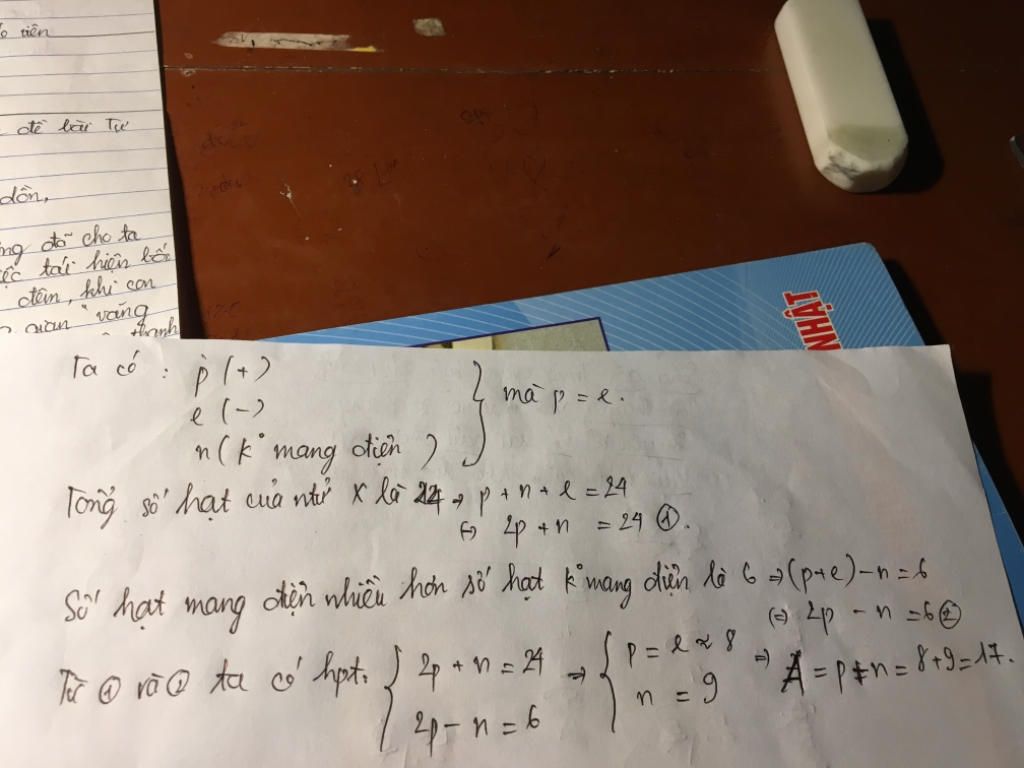 đề bài Tư
dồn,
đã cho ta
tái hiện
đêm, khi con
vắng
NHẬT
Ta có : p (+)
e (-)
n (k° mang điện)
} mà p = e.
Tổng số hạt của ntử X là 24 → p + n + e = 24
(=) 2p + n = 24 ①.
Số hạt mang điện nhiều hơn số hạt k° mang điện là 6 ⇒ (p+e) - n = 6
(=) 2p - n = 6 ②
Từ ① và ② ta có hpt: { 2p + n = 24 → { p = e ≈ 8 ⇒ A = p + n = 8 + 9 = 17.
2p - n = 6 n = 9